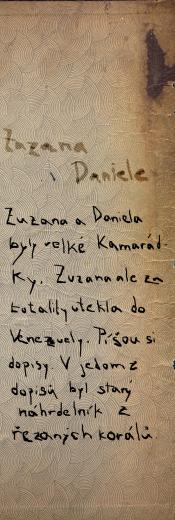 Zuzana
Daniele
Zuzana a Daniela
byly velké Kamarád-
ky. Zuzana ale za
totality utekla do
Venezuely. Píšou si
dopisy. V jedom z
dopisů byl starý
náhrdelník z
řezaných korálů.